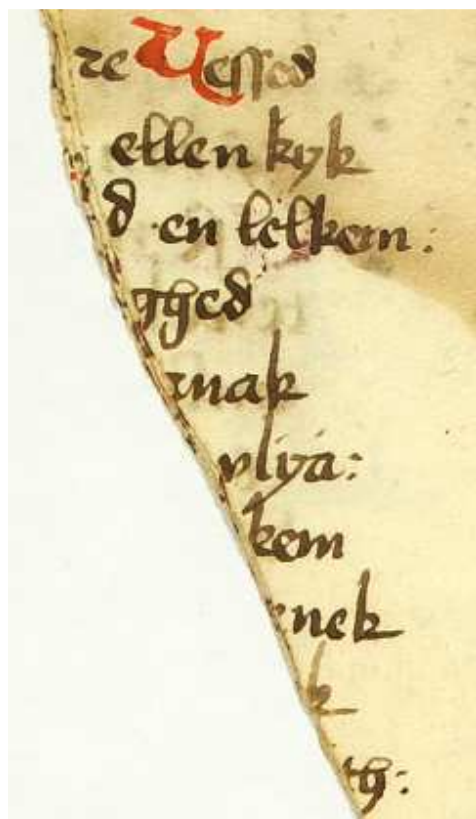 re Uessed
ellen kyk
d en lelkem:
gyed
rnak
vlya:
kem
nek
k
th: